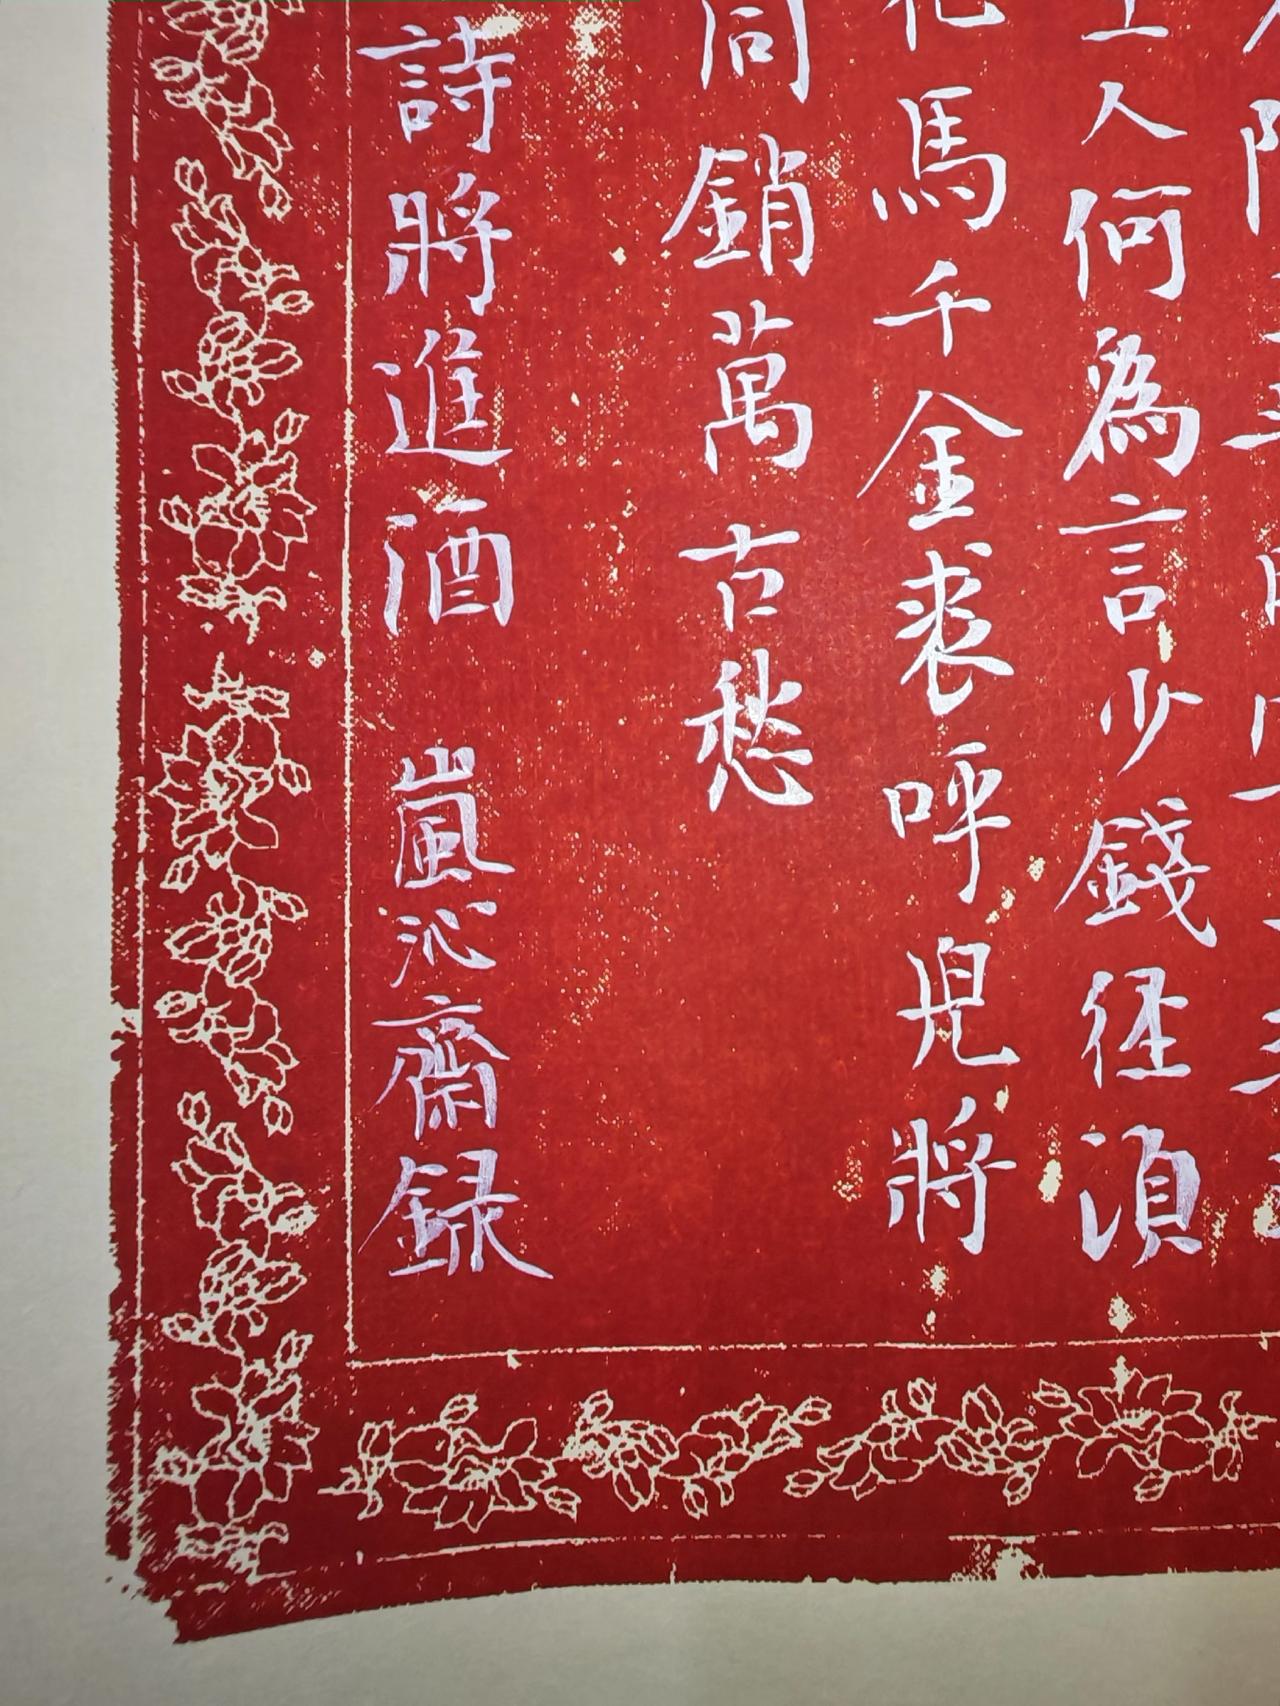 主人何為言少錢徑須
花馬千金裘呼兒將
同銷萬古愁
詩將進酒 嵐沁齋録